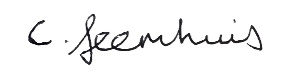 C. Seemhuis